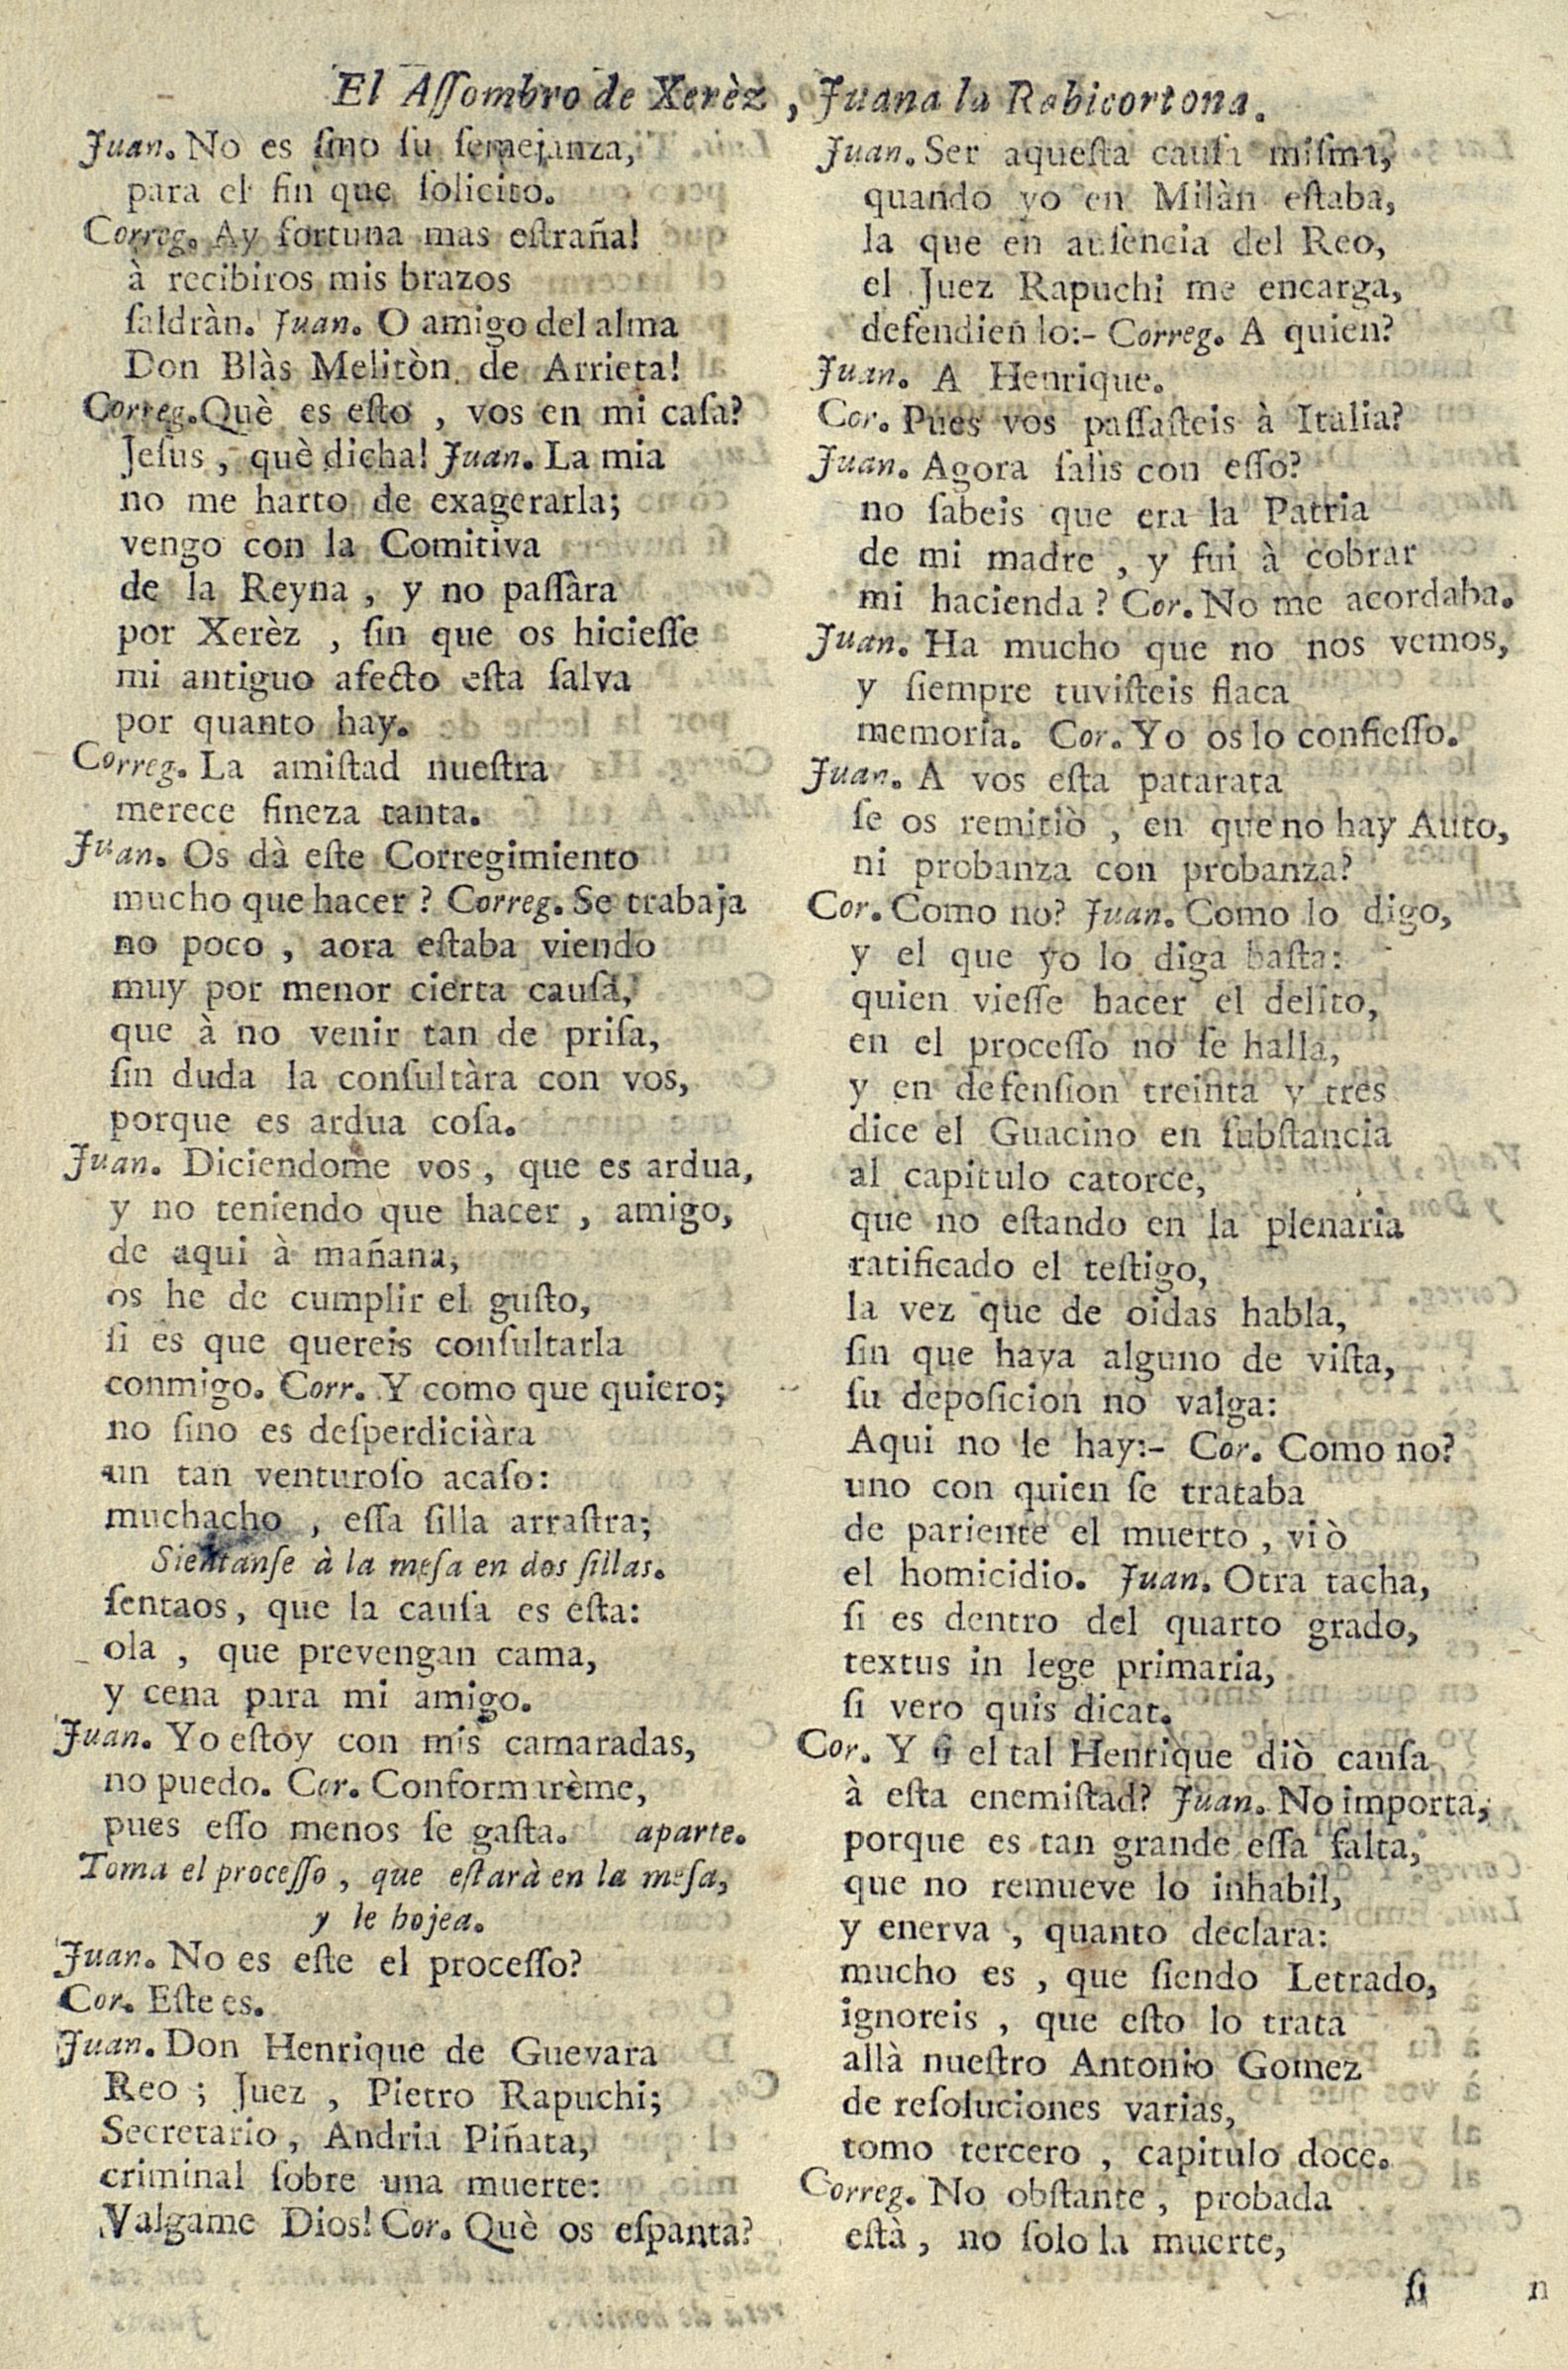 El Aſſombro de Xerèz, Juana la Rabicortona.
Juan. No es ſino ſu ſemejanza,
para el fin que ſolicito.
Correg. Ay fortuna mas eſtraña!
à recibiros mis brazos
ſaldràn. Juan. O amigo del alma
Don Blàs Melitòn de Arrieta!
Correg. Què es eſto, vos en mi caſa?
Jeſus, què dicha! Juan. La mia
no me harto de exagerarla;
vengo con la Comitiva
de la Reyna, y no paſſàra
por Xerèz, ſin que os hicieſſe
mi antiguo afecto eſta ſalva
por quanto hay.
Correg. La amiſtad nueſtra
merece fineza tanta.
Juan. Os dà eſte Corregimiento
mucho que hacer? Correg. Se trabaja
no poco, aora eſtaba viendo
muy por menor cierta cauſa,
que à no venir tan de priſa,
ſin duda la conſultàra con vos,
porque es ardua coſa.
Juan. Diciendome vos, que es ardua,
y no teniendo que hacer, amigo,
de aqui à mañana,
os he de cumplir el guſto,
ſi es que quereis conſultarla
conmigo. Corr. Y como que quiero;
no ſino es deſperdiciàra
un tan venturoſo acaſo:
muchacho, eſſa ſilla arraſtra;
Sientanſe à la meſa en dos ſillas.
ſentaos, que la cauſa es eſta:
ola, que prevengan cama,
y cena para mi amigo.
Juan. Yo eſtoy con mis camaradas,
no puedo. Cor. Conformarème,
pues eſſo menos ſe gaſta. aparte.
Toma el proceſſo, que eſtarà en la meſa,
y le hojea.
Juan. No es eſte el proceſſo?
Cor. Eſte es.
Juan. Don Henrique de Guevara
Reo; Juez, Pietro Rapuchi;
Secretario, Andria Piñata,
criminal ſobre una muerte:
Valgame Dios! Cor. Què os eſpanta?
Juan. Ser aqueſta cauſa miſma,
quando yo en Milàn eſtaba,
la que en auſencia del Reo,
el Juez Rapuchi me encarga,
defendiendo:- Correg. A quien?
Juan. A Henrique.
Cor. Pues vos paſſaſteis à Italia?
Juan. Agora ſalis con eſſo?
no ſabeis que era la Patria
de mi madre, y fui à cobrar
mi hacienda? Cor. No me acordaba.
Juan. Ha mucho que no nos vemos,
y ſiempre tuviſteis flaca
memoria. Cor. Yo os lo confieſſo.
Juan. A vos eſta patarata
ſe os remitiò, en que no hay Auto,
ni probanza con probanza?
Cor. Como no? Juan. Como lo digo,
y el que yo lo diga baſta:
quien vieſſe hacer el delito,
en el proceſſo no ſe halla,
y en defenſion treinta y tres
dice el Guacino en ſubſtancia
al capitulo catorce,
que no eſtando en la plenaria
ratificado el teſtigo,
la vez que de oidas habla,
ſin que haya alguno de viſta,
ſu depoſicion no valga:
Aqui no le hay:- Cor. Como no?
uno con quien ſe trataba
de pariente el muerto, viò
el homicidio. Juan. Otra tacha,
ſi es dentro del quarto grado,
textus in lege primaria,
ſi vero quis dicat.
Cor. Y ſi el tal Henrique diò cauſa
à eſta enemiſtad? Juan. No importa,
porque es tan grande eſſa falta,
que no remueve lo inhabil,
y enerva, quanto declara:
mucho es, que ſiendo Letrado,
ignoreis, que eſto lo trata
allà nueſtro Antonio Gomez
de reſoluciones varias,
tomo tercero, capitulo doce.
Correg. No obſtante, probada
eſtà, no ſolo la muerte,
ſi n